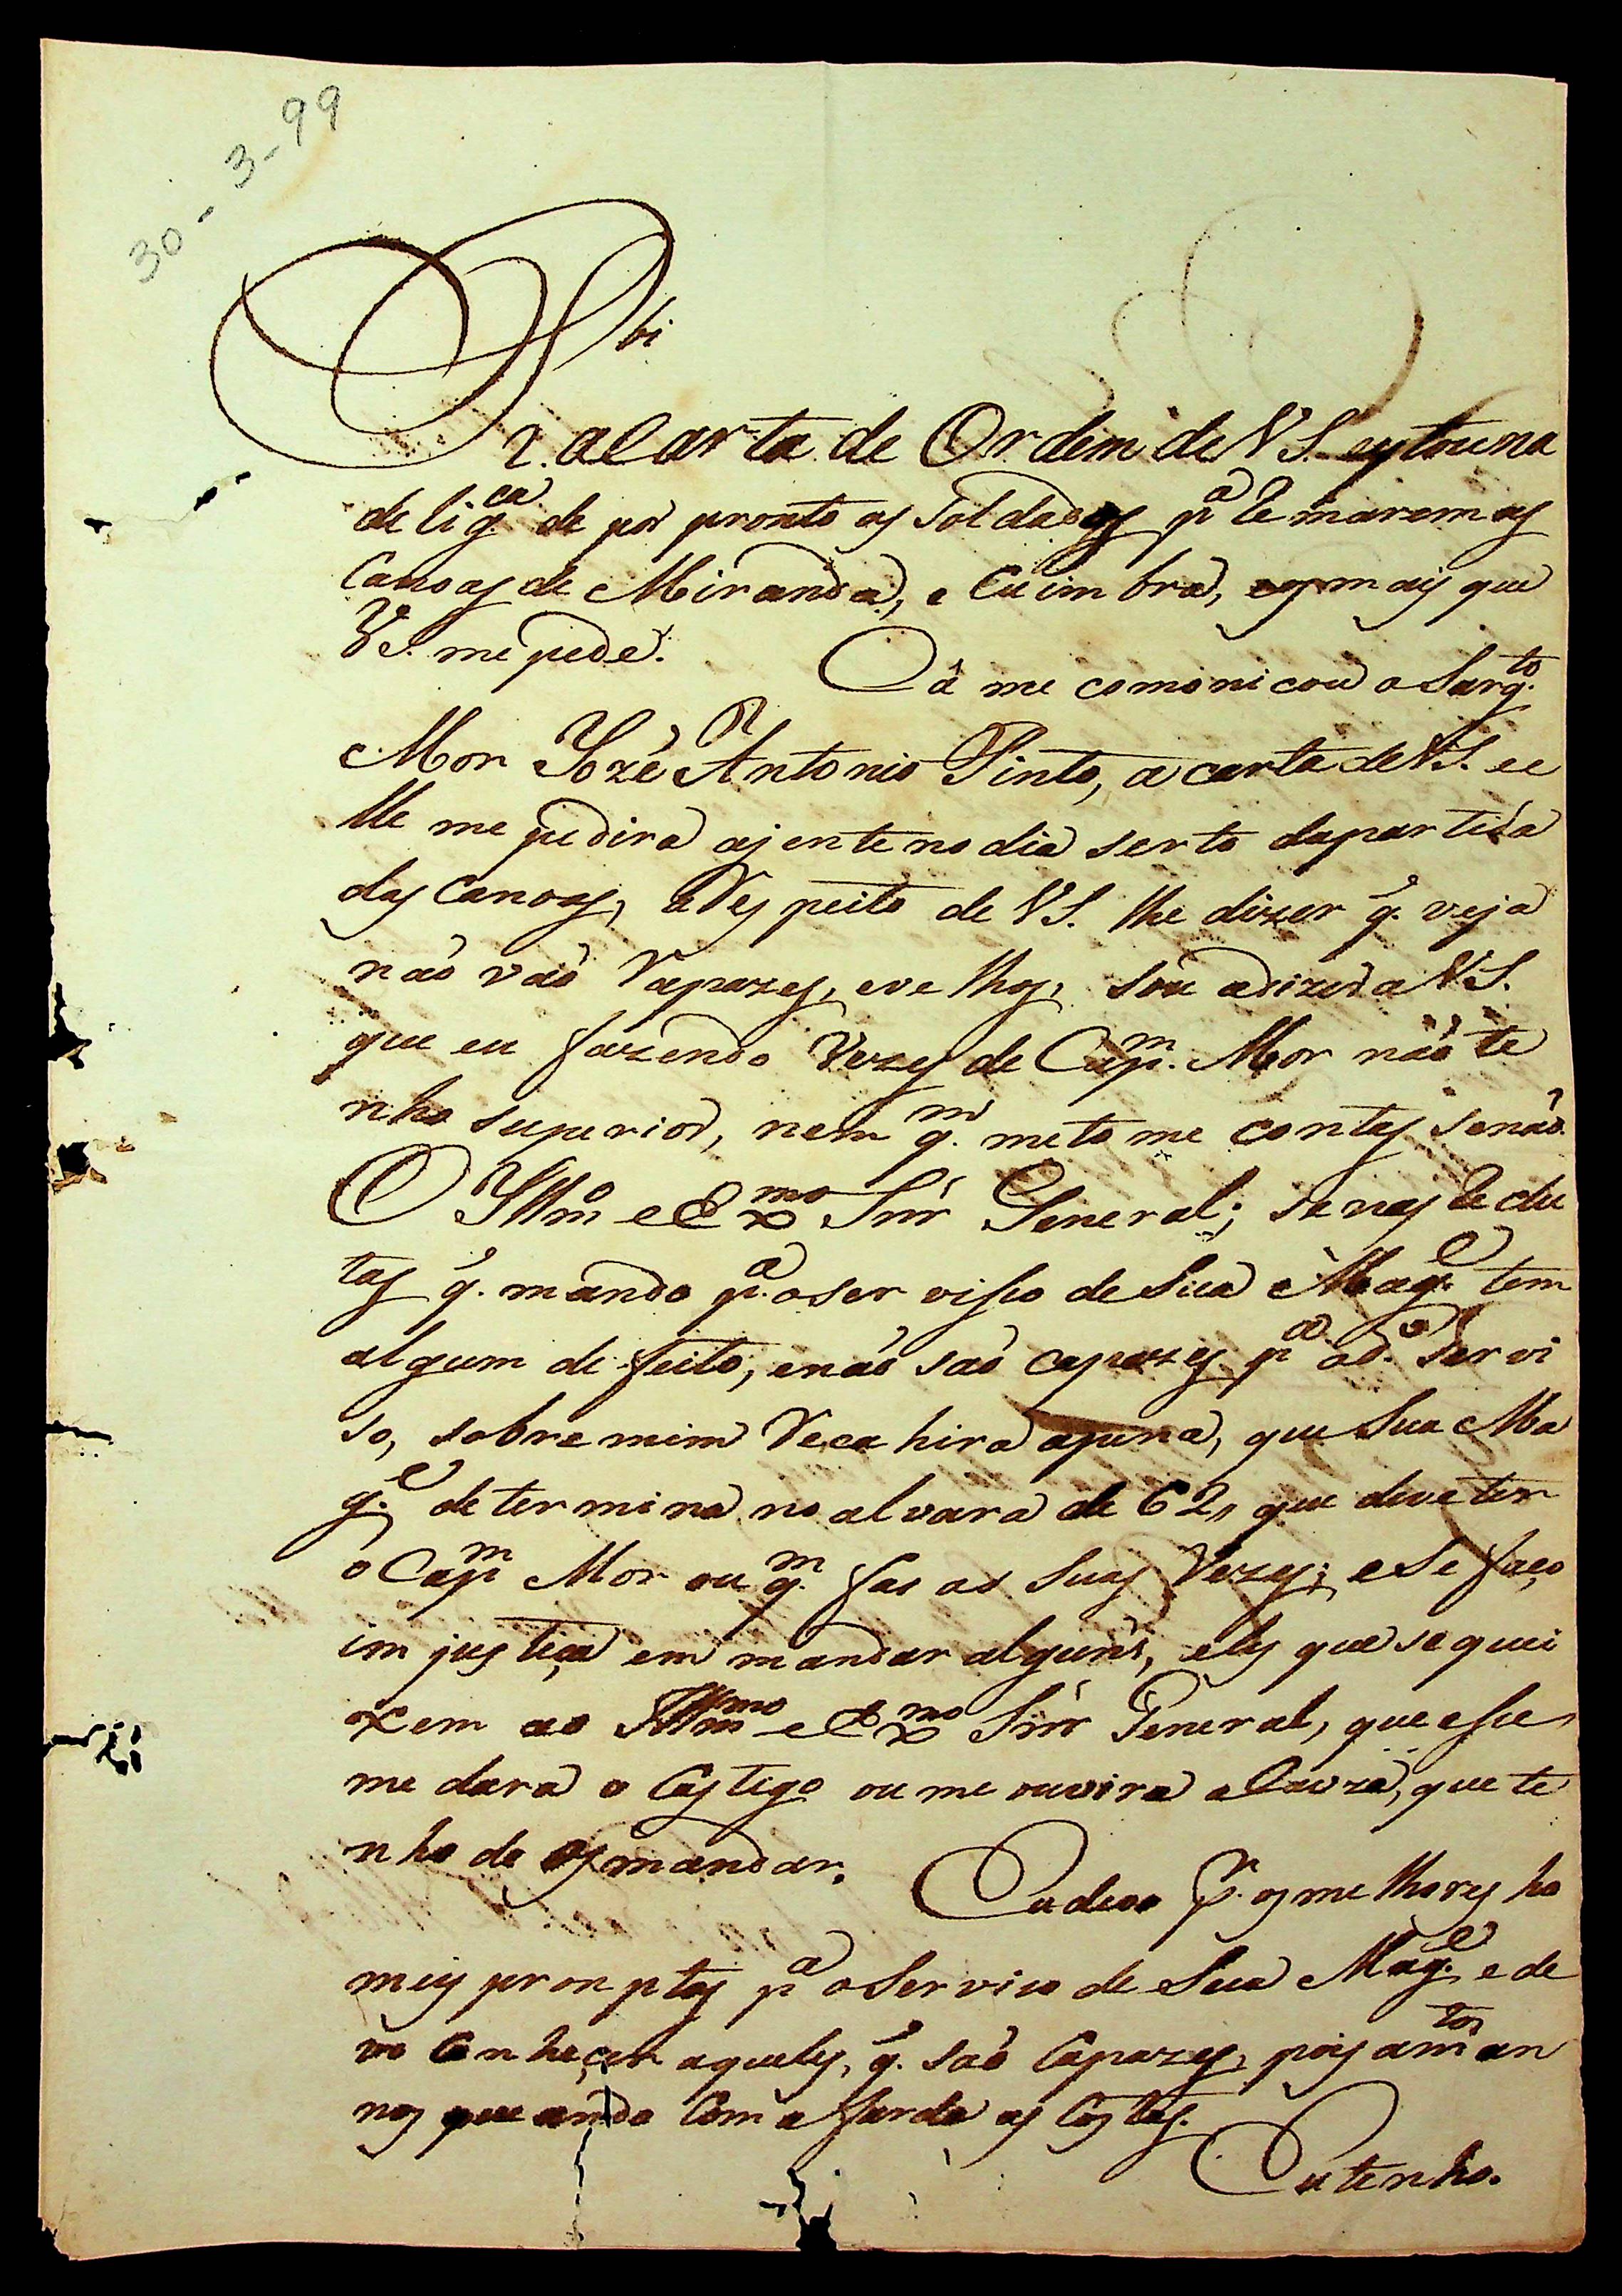 30-3-99
Rbi
r. a Carta de Ordem de VS. estou na
delig.ca de por pronto os Soldados p.a Remarem as
Canoas de Miranda, e Cuimbra, e o mais que
VS. me pede.
Cá me comonicou o Sarg.to
Mor Jozé Antonio Pinto, a carta de VS. e e
lle me pedira a jente no dia serto da partida
das Canoas, a Respeito de VS. lhe dizer q. veja
não vão Rapazes, e velhos, sou a dizer a VS.
que eu fazendo Vezes de Cap.m Mor não te
nho superior, nem q.m me tome contas senão
O Illm.o e Ex.mo Snr General; se nas Reclu
tas q. mando p.a o serviso de Sua Mag.e tem
algum defeito, e não são capazes p.a o d.o Servi
so, sobre mim Recahira a pena, que Sua Ma
g.e determina no alvara de 62, que deve ter
o Cap.m Mor ou q.m fas as Suas Vezes; e Se faço
imjustiça em mandar alguns, eles que se quei
xem ao Illm.mo e Ex.mo Snr General, que esse
me dara o Castigo ou me ouvira a Cauza, que te
nho de os mandar.
Eu devo p.r os melhores ho
mens promptos p.a o Servico de Sua Mag.e, e de
vo Conhecer aqueles, q. são Capazes, pois a m.tos an
nos que ando Com a farda as Costas.
Eu tenho.